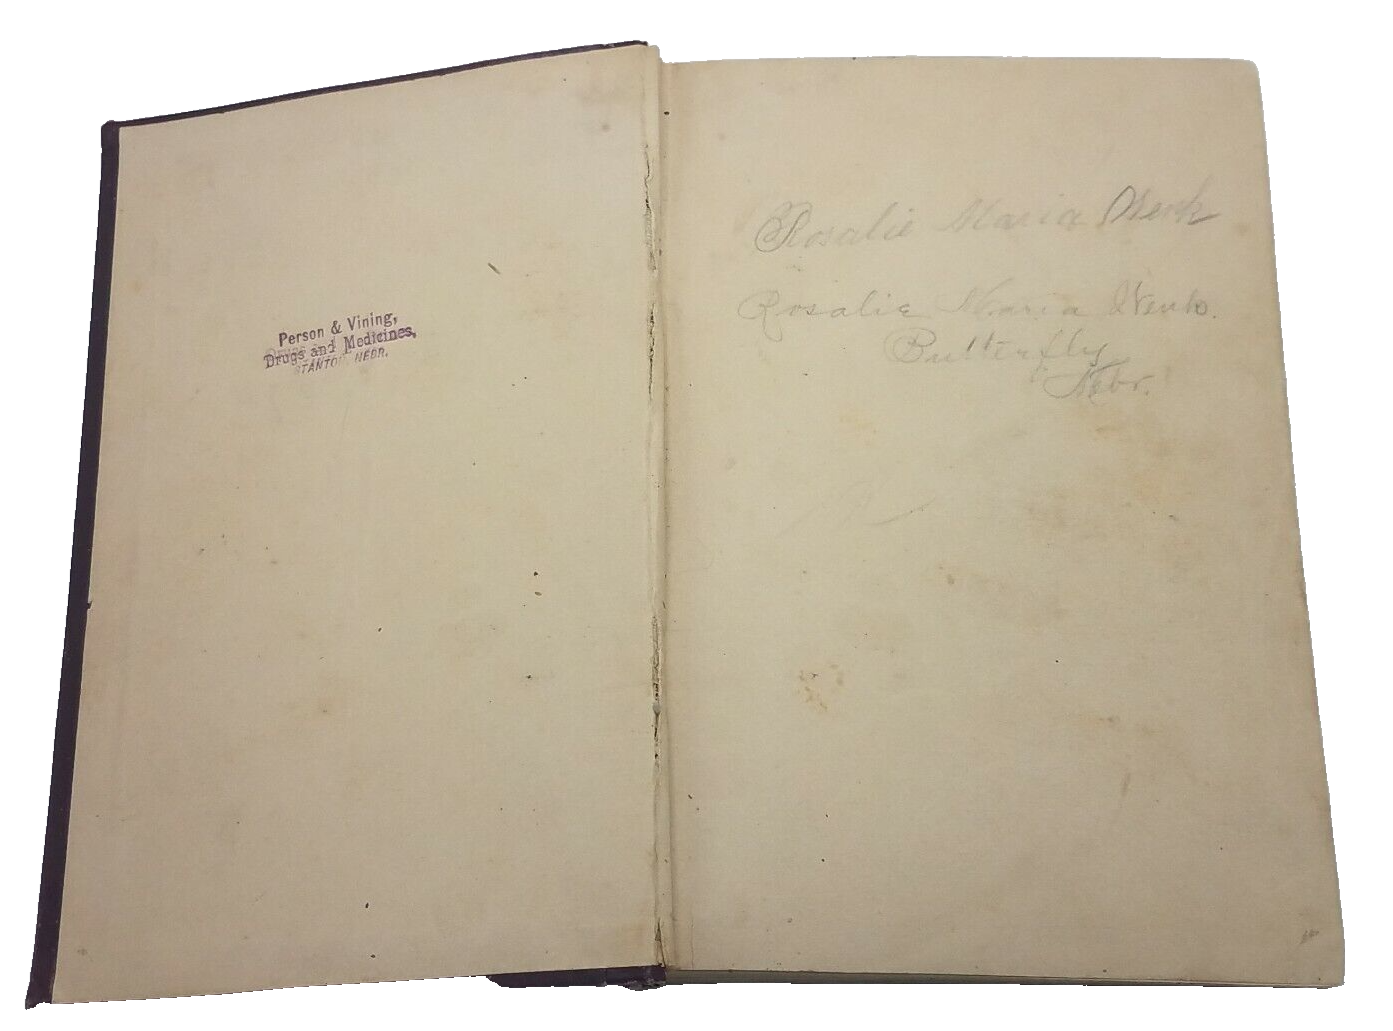 Person & Vining,
Drugs and Medicines,
STANTON NEBR.
Rosalie Maria Wenk
Rosalie Maria Wenk.
Butterfly
Nebr.